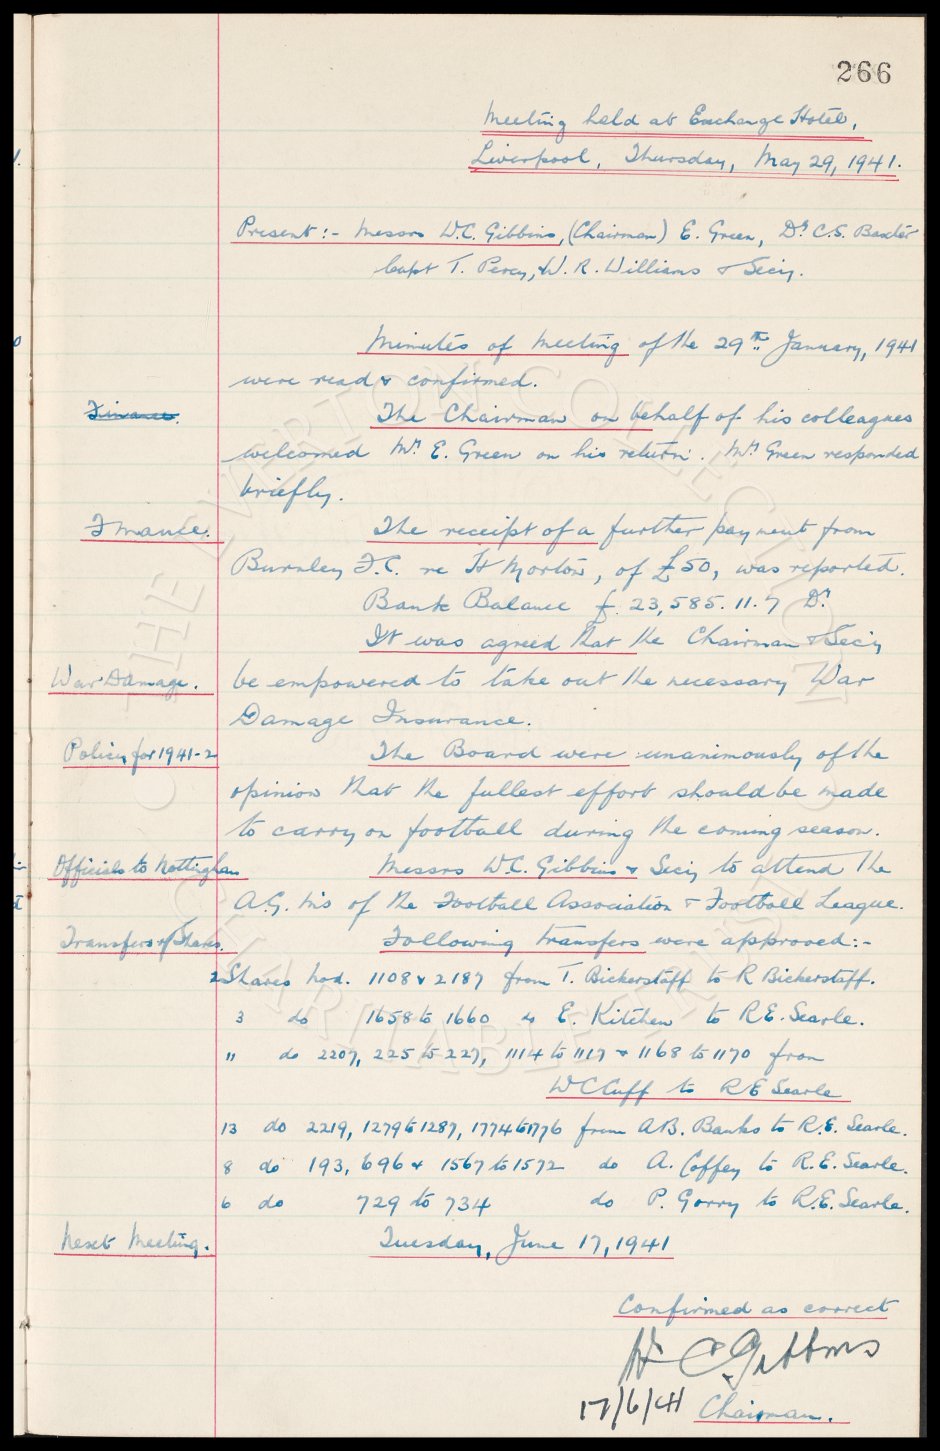 266
Meeting held at Exchange Hotel,
Liverpool, Thursday, May 29, 1941.
Present:- Messrs W.C. Gibbins, (Chairman) E. Green, Dr C.S. Baxter
Capt T. Percy, W.R. Williams & Secy.
Minutes of meeting of the 29th January, 1941
were read & confirmed.
Finance. The Chairman on behalf of his colleagues
welcomed Mr E. Green on his return. Mr Green responded
briefly.
Finance. The receipt of a further payment from
Burnley F.C. re H Morton, of £50, was reported.
Bank Balance £ 23,585.11.7 Dr
It was agreed that the Chairman & Secy
War Damage. be empowered to take out the necessary War
Damage Insurance.
Policy for 1941-2 The Board were unanimously of the
opinion that the fullest effort should be made
to carry on football during the coming season.
Officials to Nottingham Messrs W.C. Gibbins & Secy to attend the
A.G. M's of the Football Association & Football League.
Transfers of Shares. Following transfers were approved:-
2 Shares Nod. 1108 & 2187 from T. Bickerstaff to R Bickerstaff.
3 do 1658 to 1660 do E. Kitchen to R.E. Searle.
" do 2207, 225 to 227, 1114 to 1117 & 1168 to 1170 from
W C Cuff to R E Searle
13 do 2219, 1279 to 1287, 1774 to 1776 from A.B. Banks to R.E. Searle.
8 do 193, 696 & 1567 to 1572 do A. Coffey to R.E. Searle.
6 do 729 to 734 do P. Gorry to R.E. Searle.
Next Meeting. Tuesday, June 17, 1941
Confirmed as correct
W C Gibbins
17/6/41 Chairman.
THE EVERTON COLLECTION
CHARITABLE TRUST